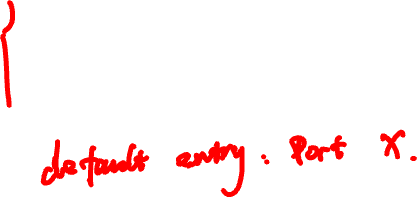 default entry : Port X.